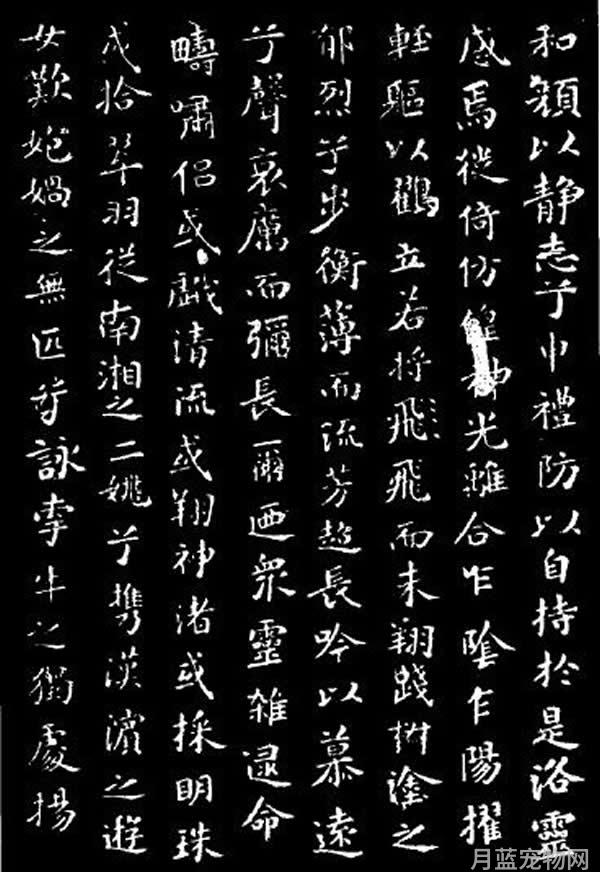 和顔以静志兮申禮防以自持於是洛靈
感焉徙倚仿偟神光離合乍陰乍陽擢
輕軀以鶴立若将飛飛而未翔踐椒塗之
郁烈兮步衡薄而流芳超長吟以慕遠
兮聲哀厲而彌長爾迺衆靈雜遝命
疇嘯侣或戲清流或翔神渚或採明珠
或拾翠羽從南湘之二姚兮携漢濱之遊
女歎㚿媧之無匹兮詠牽牛之獨處揚
月蓝宠物网